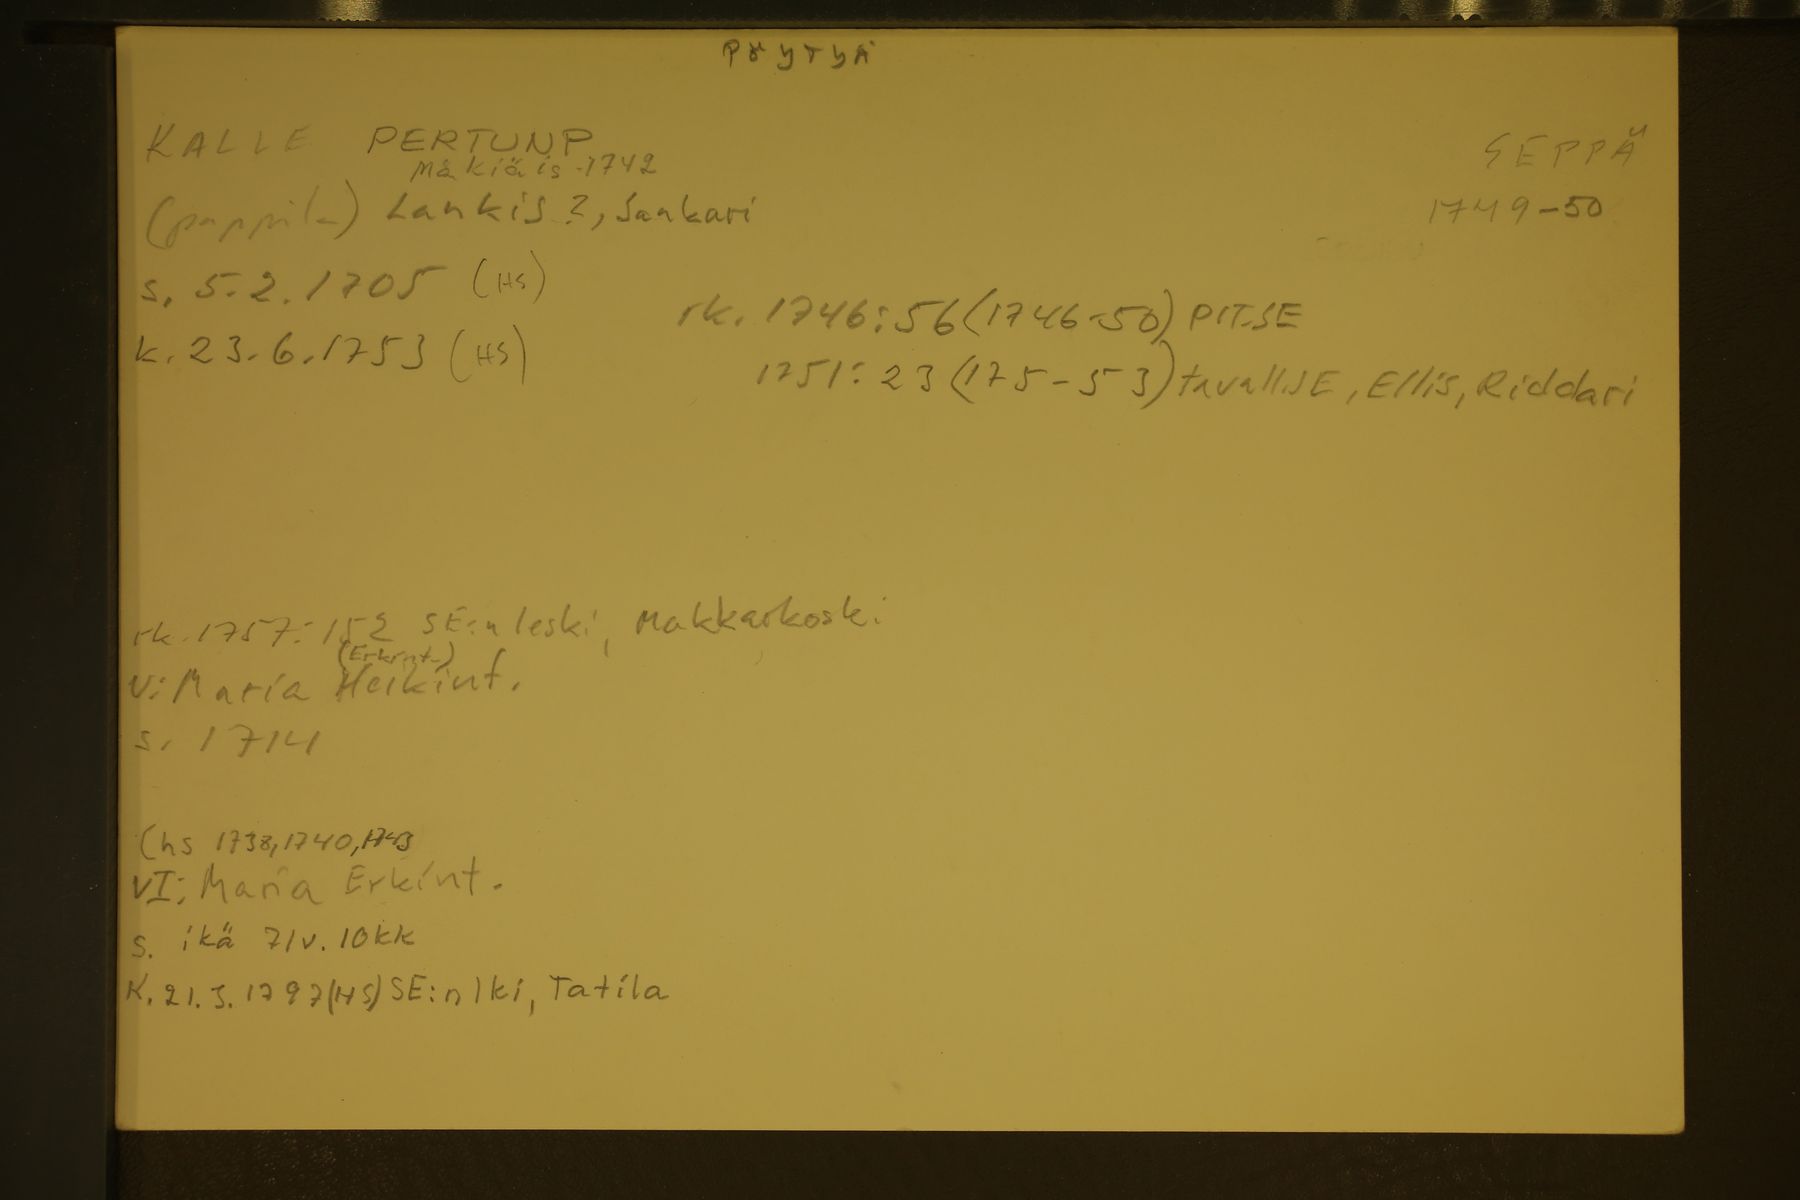 PÖYTYÄ
KALLE PERTUNP
SEPPÄ
Mäkiäis -1742
(pappila) Lankis ?, Sankari
1749-50
s. 5.2.1705 (HS)
rk. 1746:56 (1746-50) PIT.SE
k. 23.6.1753 (HS)
1751: 23 (175-53) tavall.SE, Ellis, Riddari
rk. 1757: 152 SE:n leski, Makkarkoski
(Erkint.)
V: Maria Heikint.
s. 1714
(hs 1738, 1740, 1743
VI: Maria Erkint.
s. ikä 71v. 10kk
K. 21.5.1797 (HS) SE:n lki, Tatila